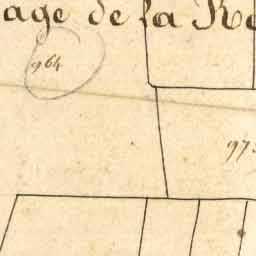 age de la Ro
964
973